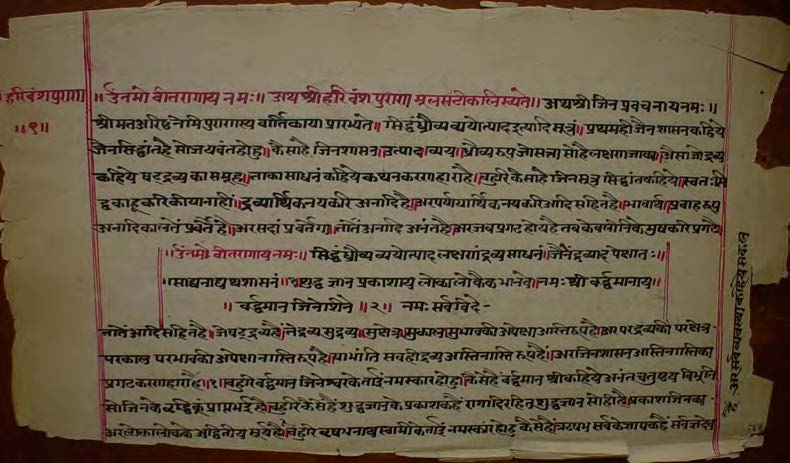 हरिवंशपुराण
॥१॥
॥उँनमो वीतरागाय नमः॥ अथ श्री हरिवंश पुराण मूलसटीकालिख्यते॥ अथ श्री जिन प्रवचनाय नमः॥
श्रीमत अरिष्टनेमि पुराणस्य वार्तिकाया प्रारभ्यते॥ सिद्धंध्रौव्यव्ययोत्पाद इत्यादि सूत्रं॥ प्रथमही जैन शासन कहिये
जैन सिद्धांतहै सो जयवंत होहु॥ कैसा है जिन शासन॥ उत्पाद व्यय ध्रौव्य रूप जो सत्ता सोहै लक्षण जाका॥ अैसा जो द्रव्य
कहिये षट् द्रव्य का समूह॥ ताका साधन कहिये कथन करणहारा है॥ बहुरि कैसा है जिन सूत्र सिद्धांत कहिये॥ स्वतः सि
द्ध काहू करि कीया नाही॥ द्रव्यार्थिक नय करि अनादि है॥ अर पर्यायार्थिक नय करि आदि सहित है॥ भावार्थ॥ प्रवाह रूप
अनादि काल तें प्रवर्तै है॥ अर सदां प्रवर्तेगा॥ तातें अनादि अनंत है॥ अर जब प्रगट होय है तब केवली निके मुख करि प्रगटै
॥उँनमो वीतरागाय नमः॥ सिद्धं ध्रौव्य व्ययोत्पाद लक्षणं द्रव्य साधनं॥ जैनं द्रव्याद्यपेक्षातः॥
॥साद्यनाद्यथ शासनं॥ शुद्ध ज्ञान प्रकाशाय लोकालोकैक भानवे॥ नमः श्री वर्द्धमानाय॥
॥ वर्द्धमान जिनेशिने ॥२॥ नमः सर्वविदे-
तातें आदि सहित है॥ जे षट् द्रव्य है॥ ते द्रव्य सुद्रव्य॥ सुक्षेत्र॥ सुकाल॥ सुभावकी अपेक्षा अस्ति रूप है॥ अर परद्रव्य की परक्षेत्र
परकाल परभावकी अपेक्षा नास्ति रूप है॥ या भांति सबही द्रव्य अस्ति नास्ति रूप है॥ अर जिन शासन अस्ति नास्तिका
प्रगट करणहारा है॥१॥ बहुरि वर्द्धमान जिनेश्वर के तांई नमस्कार होहु॥ कैसे है वर्द्धमान श्री कहिये अनंत चतुष्टय विभूति
सो जिनके वृद्धि कूं प्राप्त भई है॥ बहुरि कैसे है शुद्ध ज्ञान के प्रकाशक है रागादि रहित शुद्ध ज्ञान सोहि है प्रकाश जिनका
अर लोकालोक के अद्वितीय सूर्य है॥ बहुरि वृषभनाथ स्वामी के तांई नमस्कार होहु कैसे है सर्व के ज्ञायक है सर्वज्ञ देव
है अर सर्व व्यवस्था कहिये सकल